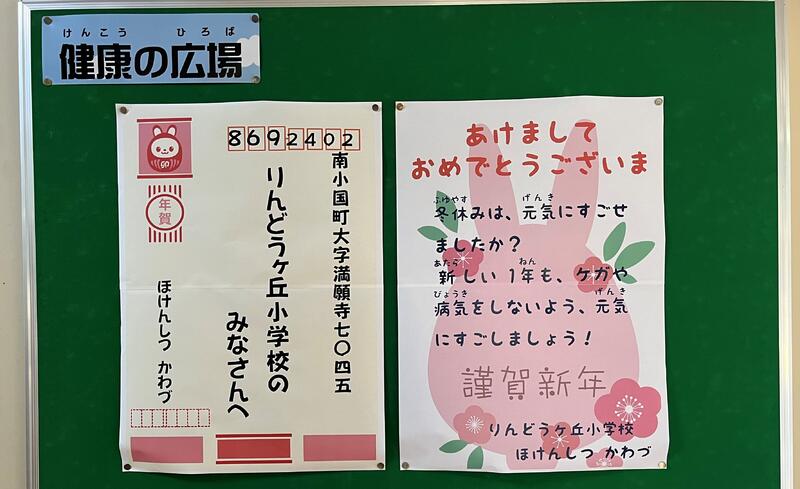 けんこう ひろば
健康の広場
8692402
南小国町大字満願寺七〇四五
りんどうヶ丘小学校の
みなさんへ
年賀
ほけんしつ かわづ
あけまして
おめでとうございま
ふゆやす げんき
冬休みは、元気にすごせ
ましたか?
あたら ねん
新しい 1年も、ケガや
びょうき げんき
病気をしないよう、元気
にすごしましょう!
謹賀新年
りんどうヶ丘小学校
ほけんしつ かわづ